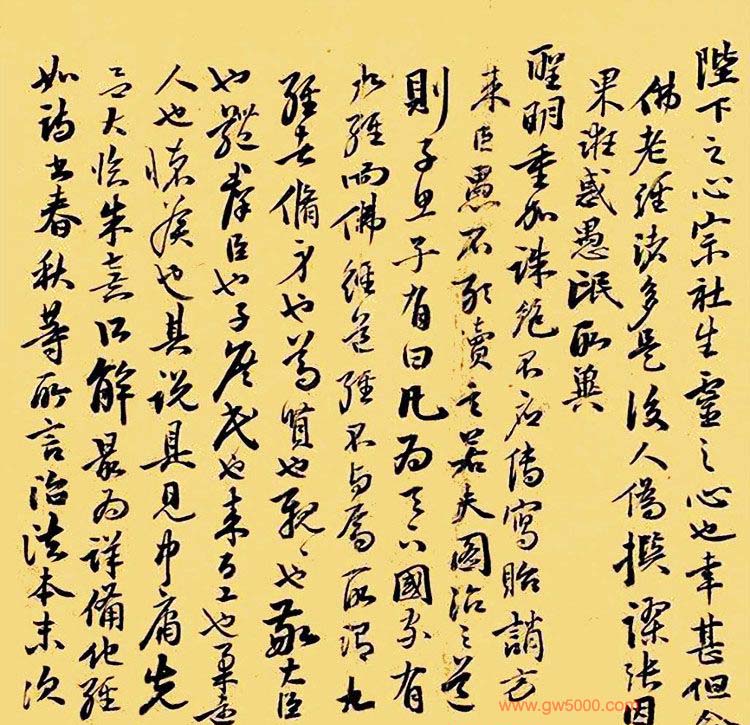 陛下之心宗社生靈之心也幸甚但念
佛老經諸多是後人偽撰謬張因
果誑惑愚氓所冀
聖明重加誅絕不应傳寫貽誚方
来臣愚不敢瀆言若夫國治之道
則子思子有曰凡為天下國家有
九經而佛經道經不与焉所謂九
經者脩身也尊賢也親〻也敬大臣
也體群臣也子庶民也来百工也柔遠
人也懷矦也其說具見中庸先
大朱熹所解最為詳備他經
如詩书春秋等所言治法本末次
www.gw5000.com